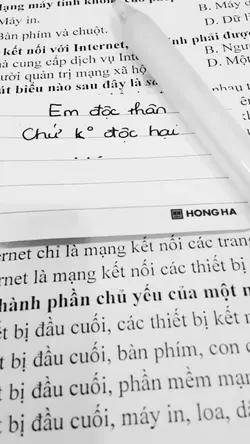 dạng máy tính không
Máy in.
B. Máy
Bàn phím và chuột.
D. Dữ l
kết nối với Internet,
ính phải được
hà cung cấp dịch vụ Int
B. Ngu
ười quản trị mạng xã hộ
D. Một
át biểu nào sau đây là sa
Em độc thân
Chứ k° độc hại
...
HONG HA
ernet chỉ là mạng kết nối các tran
rnet là mạng kết nối các thiết bị
hành phần chủ yếu của một m
t bị đầu cuối, các thiết bị kết n
t bị đầu cuối, bàn phím, con c
t bị đầu cuối, phần mềm mạn
t bị đầu cuối, máy in, loa, dâ